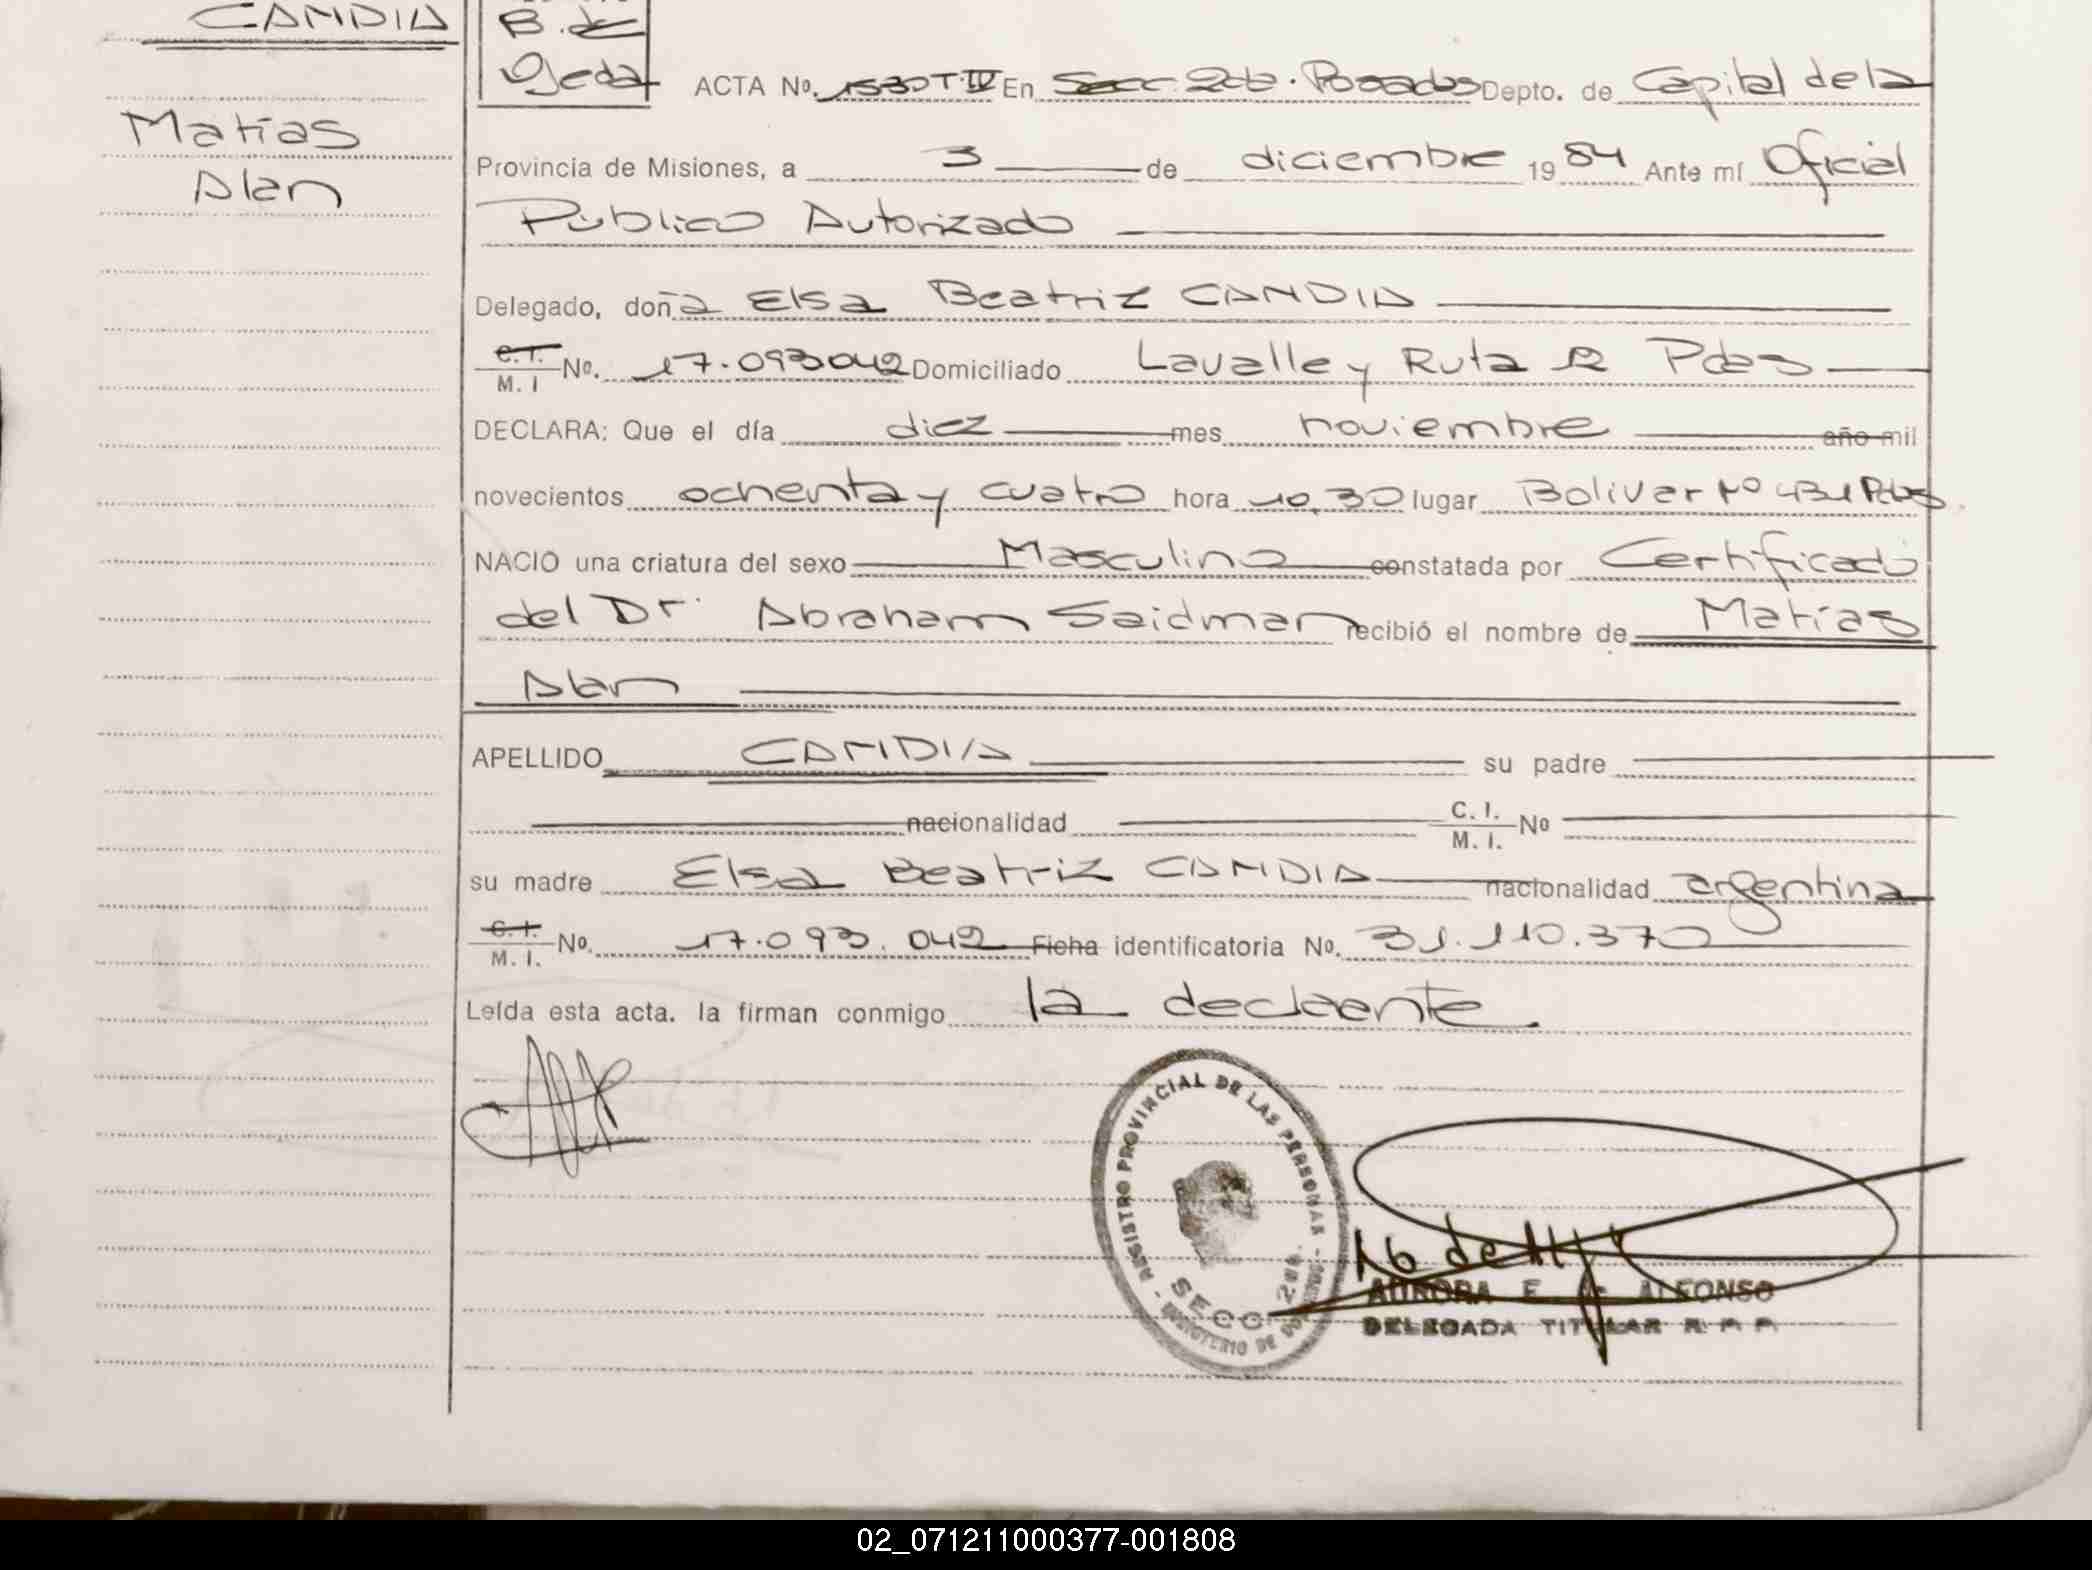 CANDIA
Matías
Alan
B. de
Ojeda
ACTA Nº. 1530 T. IV En Secc. 2da. Posadas Depto. de Capital de la
Provincia de Misiones, a 3 de diciembre 1984 Ante mí Oficial
Público Autorizado
Delegado, doña Elsa Beatriz CANDIA
C.I. M. I Nº. 17.093042 Domiciliado Lavalle y Ruta 12 Pdas
DECLARA: Que el día diez mes noviembre año mil
novecientos ochenta y cuatro hora 10,30 lugar Bolivar Nº 431 Pdas
NACIO una criatura del sexo Masculino constatada por Certificado
del Dr. Abraham Saidman recibió el nombre de Matías
Alan
APELLIDO CANDIA su padre
nacionalidad C. I. M. I. Nº
su madre Elsa Beatriz CANDIA nacionalidad argentina
C.I. M. I. Nº. 17.093.042 Ficha identificatoria Nº. 31.110.370
Leída esta acta. la firman conmigo la declaente
REGISTRO PROVINCIAL DE LAS PERSONAS
SECC. 2da.
MINISTERIO DE GOBIERNO
AURORA E. ALFONSO
DELEGADA TITULAR R. P. P.
02_071211000377-001808